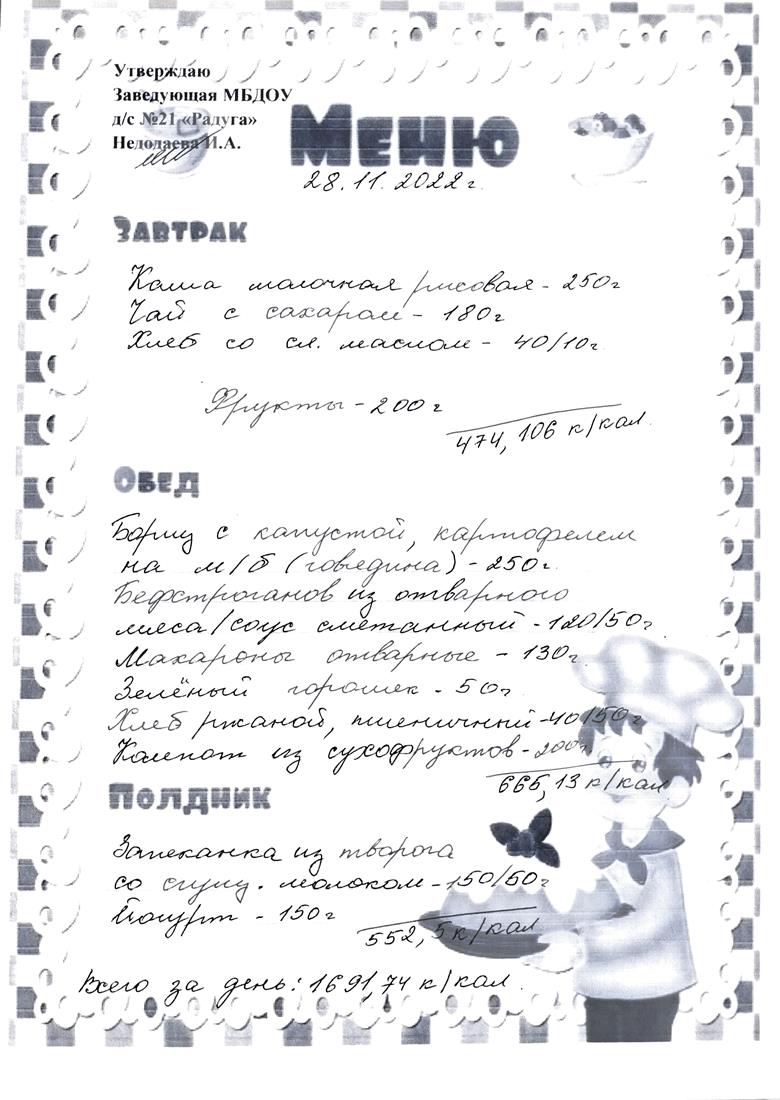 Утверждаю
Заведующая МБДОУ
д/с №21 «Радуга»
Недодаева И.А.
Меню
28.11.2022г.
Завтрак
Каша молочная рисовая - 250г
Чай с сахаром - 180г
Хлеб со сл. маслом - 40/10г
Фрукты - 200г
474,106 к/кал
Обед
Борщ с капустой, картофелем
на м/б (говедина) - 250г.
Бефстроганов из отварного
мяса/соус сметанный - 120/50г
Макароны отварные - 130г
Зелёный горошек - 50г
Хлеб ржаной, пшеничный - 40/50г
Компот из сухофруктов - 200г
665,13 к/кал
Полдник
Запеканка из творога
со сгущ. молоком - 150/50г
Йогурт - 150г
552,5 к/кал
Всего за день: 1691,74 к/кал.